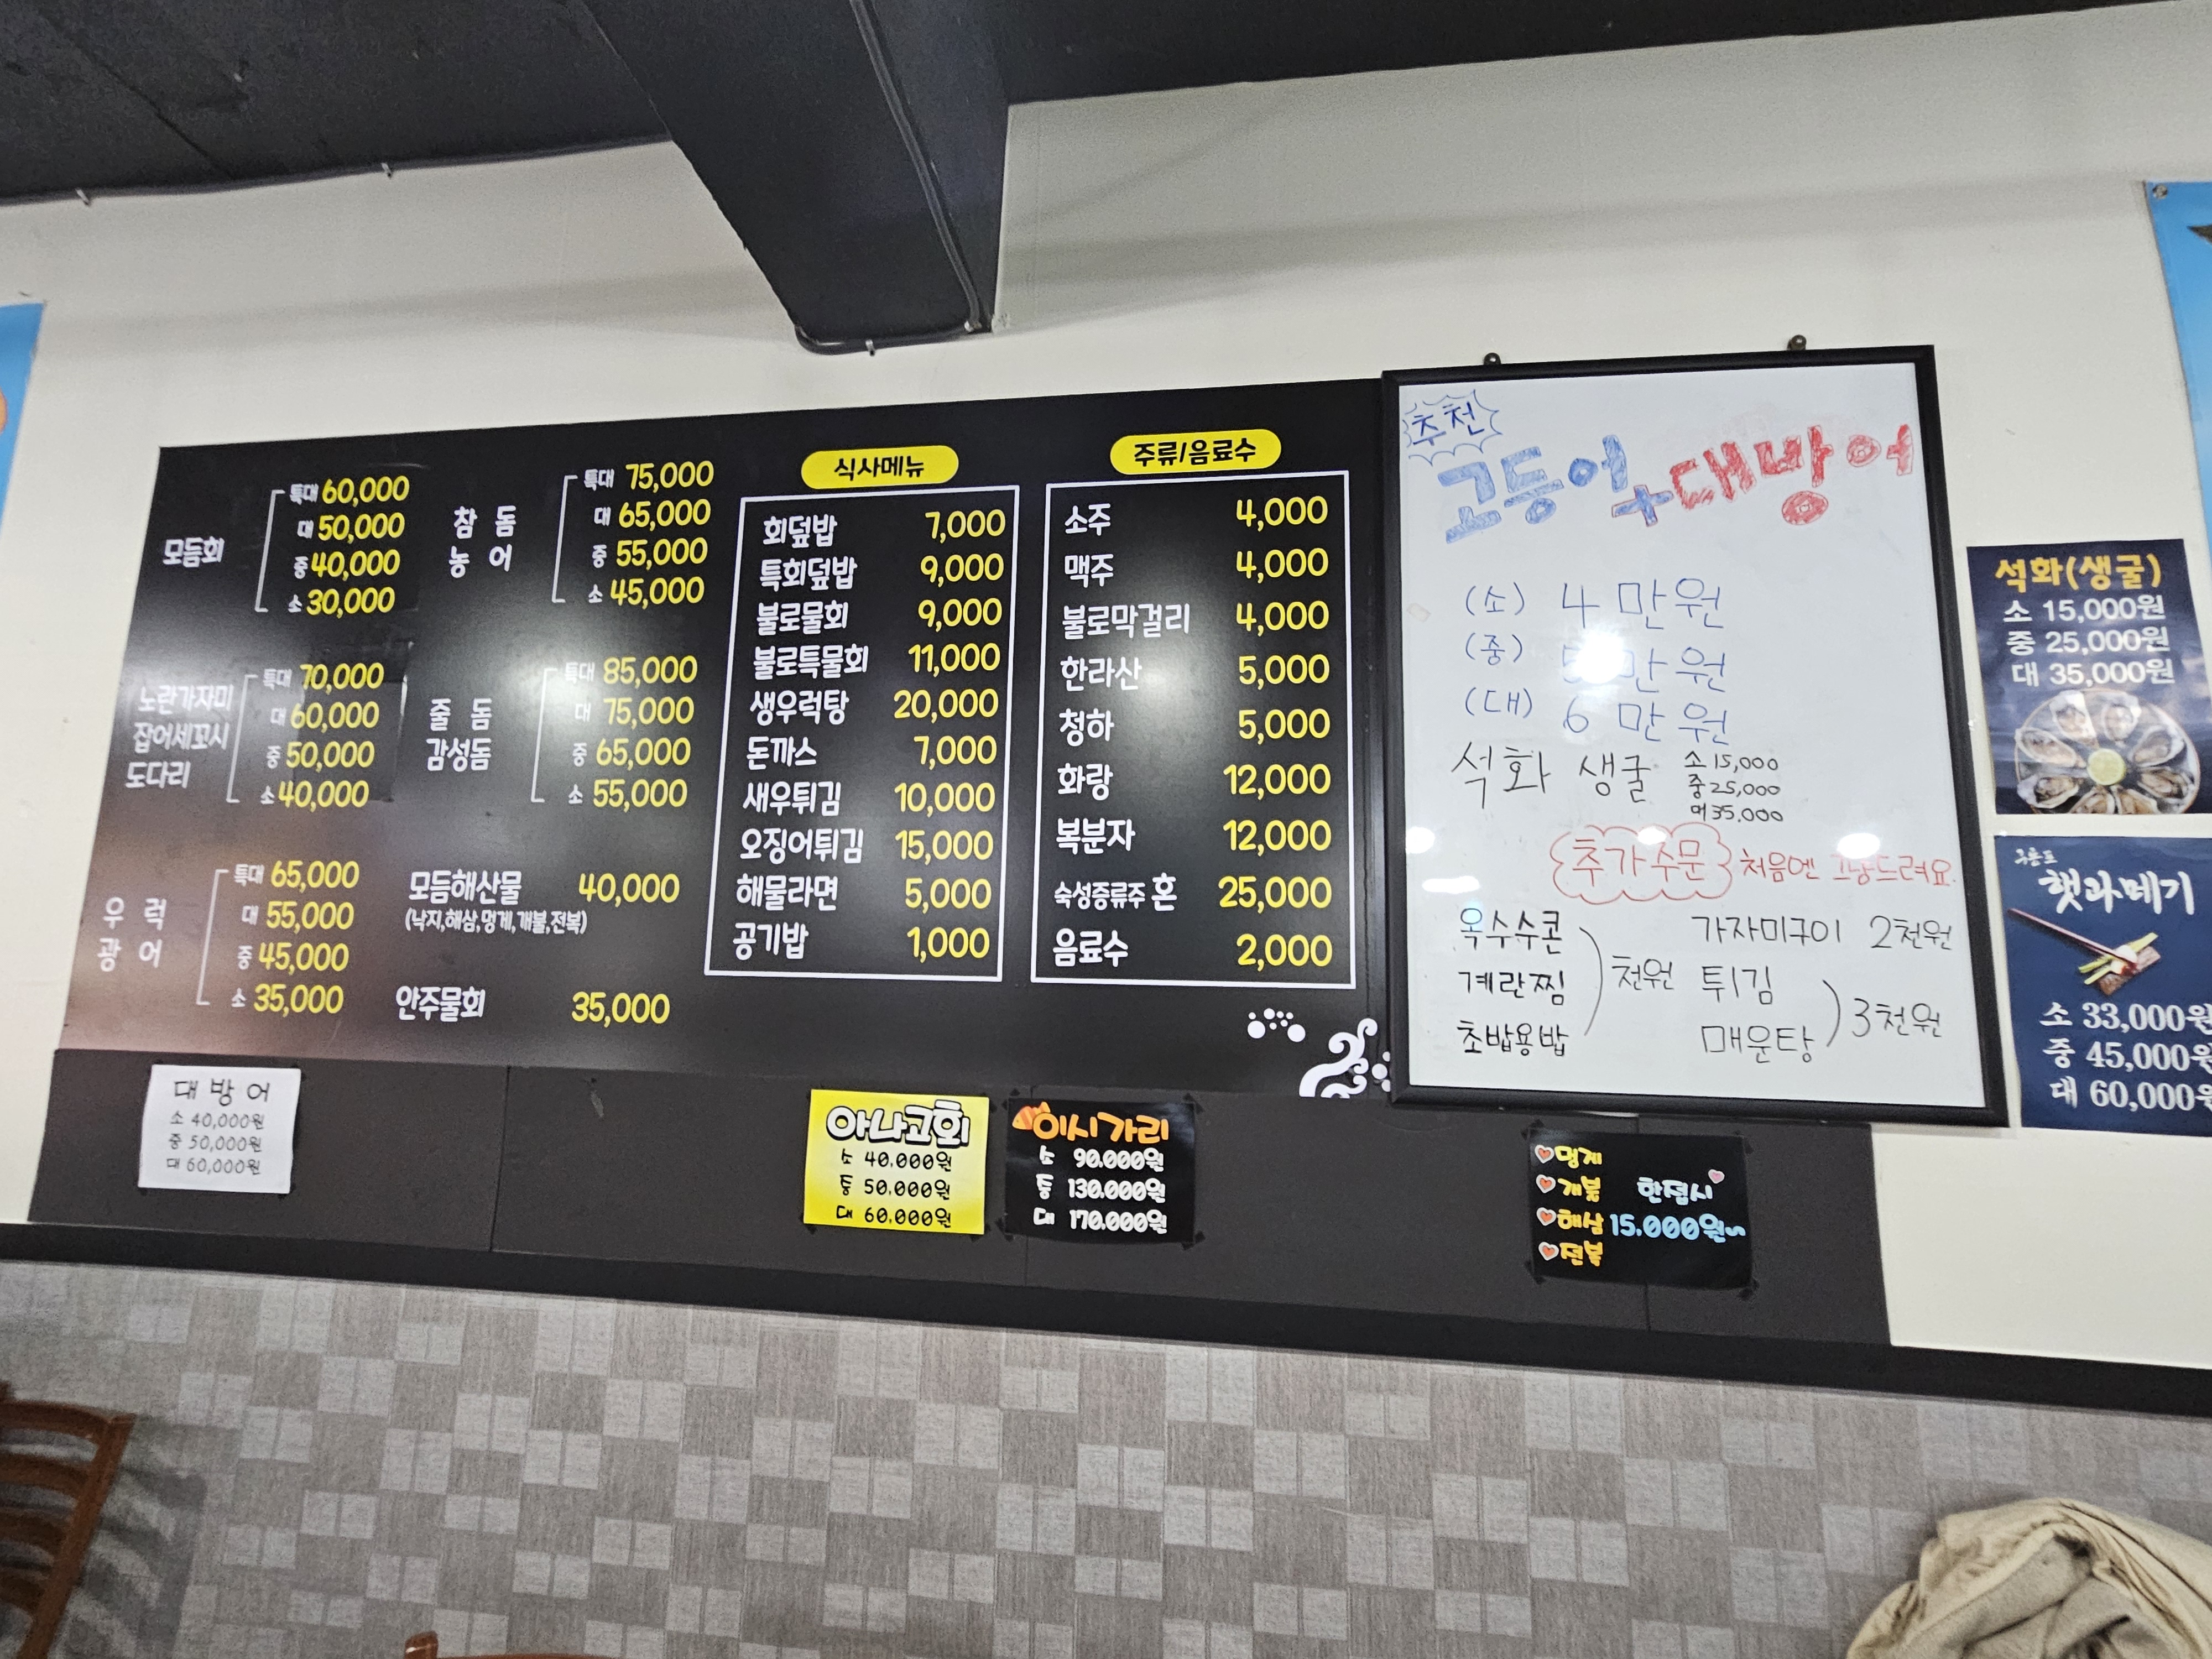 모듬회
특대 60,000
대 50,000
중 40,000
소 30,000
참 돔
농 어
특대 75,000
대 65,000
중 55,000
소 45,000
노란가자미
잡어세꼬시
도다리
특대 70,000
대 60,000
중 50,000
소 40,000
줄 돔
감성돔
특대 85,000
대 75,000
중 65,000
소 55,000
우 럭
광 어
특대 65,000
대 55,000
중 45,000
소 35,000
모듬해산물 40,000
(낙지,해삼,멍게,개불,전복)
안주물회 35,000
식사메뉴
회덮밥 7,000
특회덮밥 9,000
불로물회 9,000
불로특물회 11,000
생우럭탕 20,000
돈까스 7,000
새우튀김 10,000
오징어튀김 15,000
해물라면 5,000
공기밥 1,000
주류/음료수
소주 4,000
맥주 4,000
불로막걸리 4,000
한라산 5,000
청하 5,000
화랑 12,000
복분자 12,000
숙성증류주 혼 25,000
음료수 2,000
추천
고등어+대방어
(소) 4만원
(중) 만원
(대) 6만원
석화 생굴
소 15,000
중 25,000
머 35,000
추가주문 처음엔 그냥드려요.
옥수수콘
계란찜
초밥용밥
천원
가자미구이 2천원
튀김
매운탕
3천원
석화(생굴)
소 15,000원
중 25,000원
대 35,000원
구룡포
햇과메기
소 33,000원
중 45,000원
대 60,000원
대 방 어
소 40,000원
중 50,000원
대 60,000원
아나고회
소 40.000원
중 50.000원
대 60.000원
이시가리
소 90.000원
중 130.000원
대 170.000원
멍게
개불
해삼
전복
한접시
15.000원~